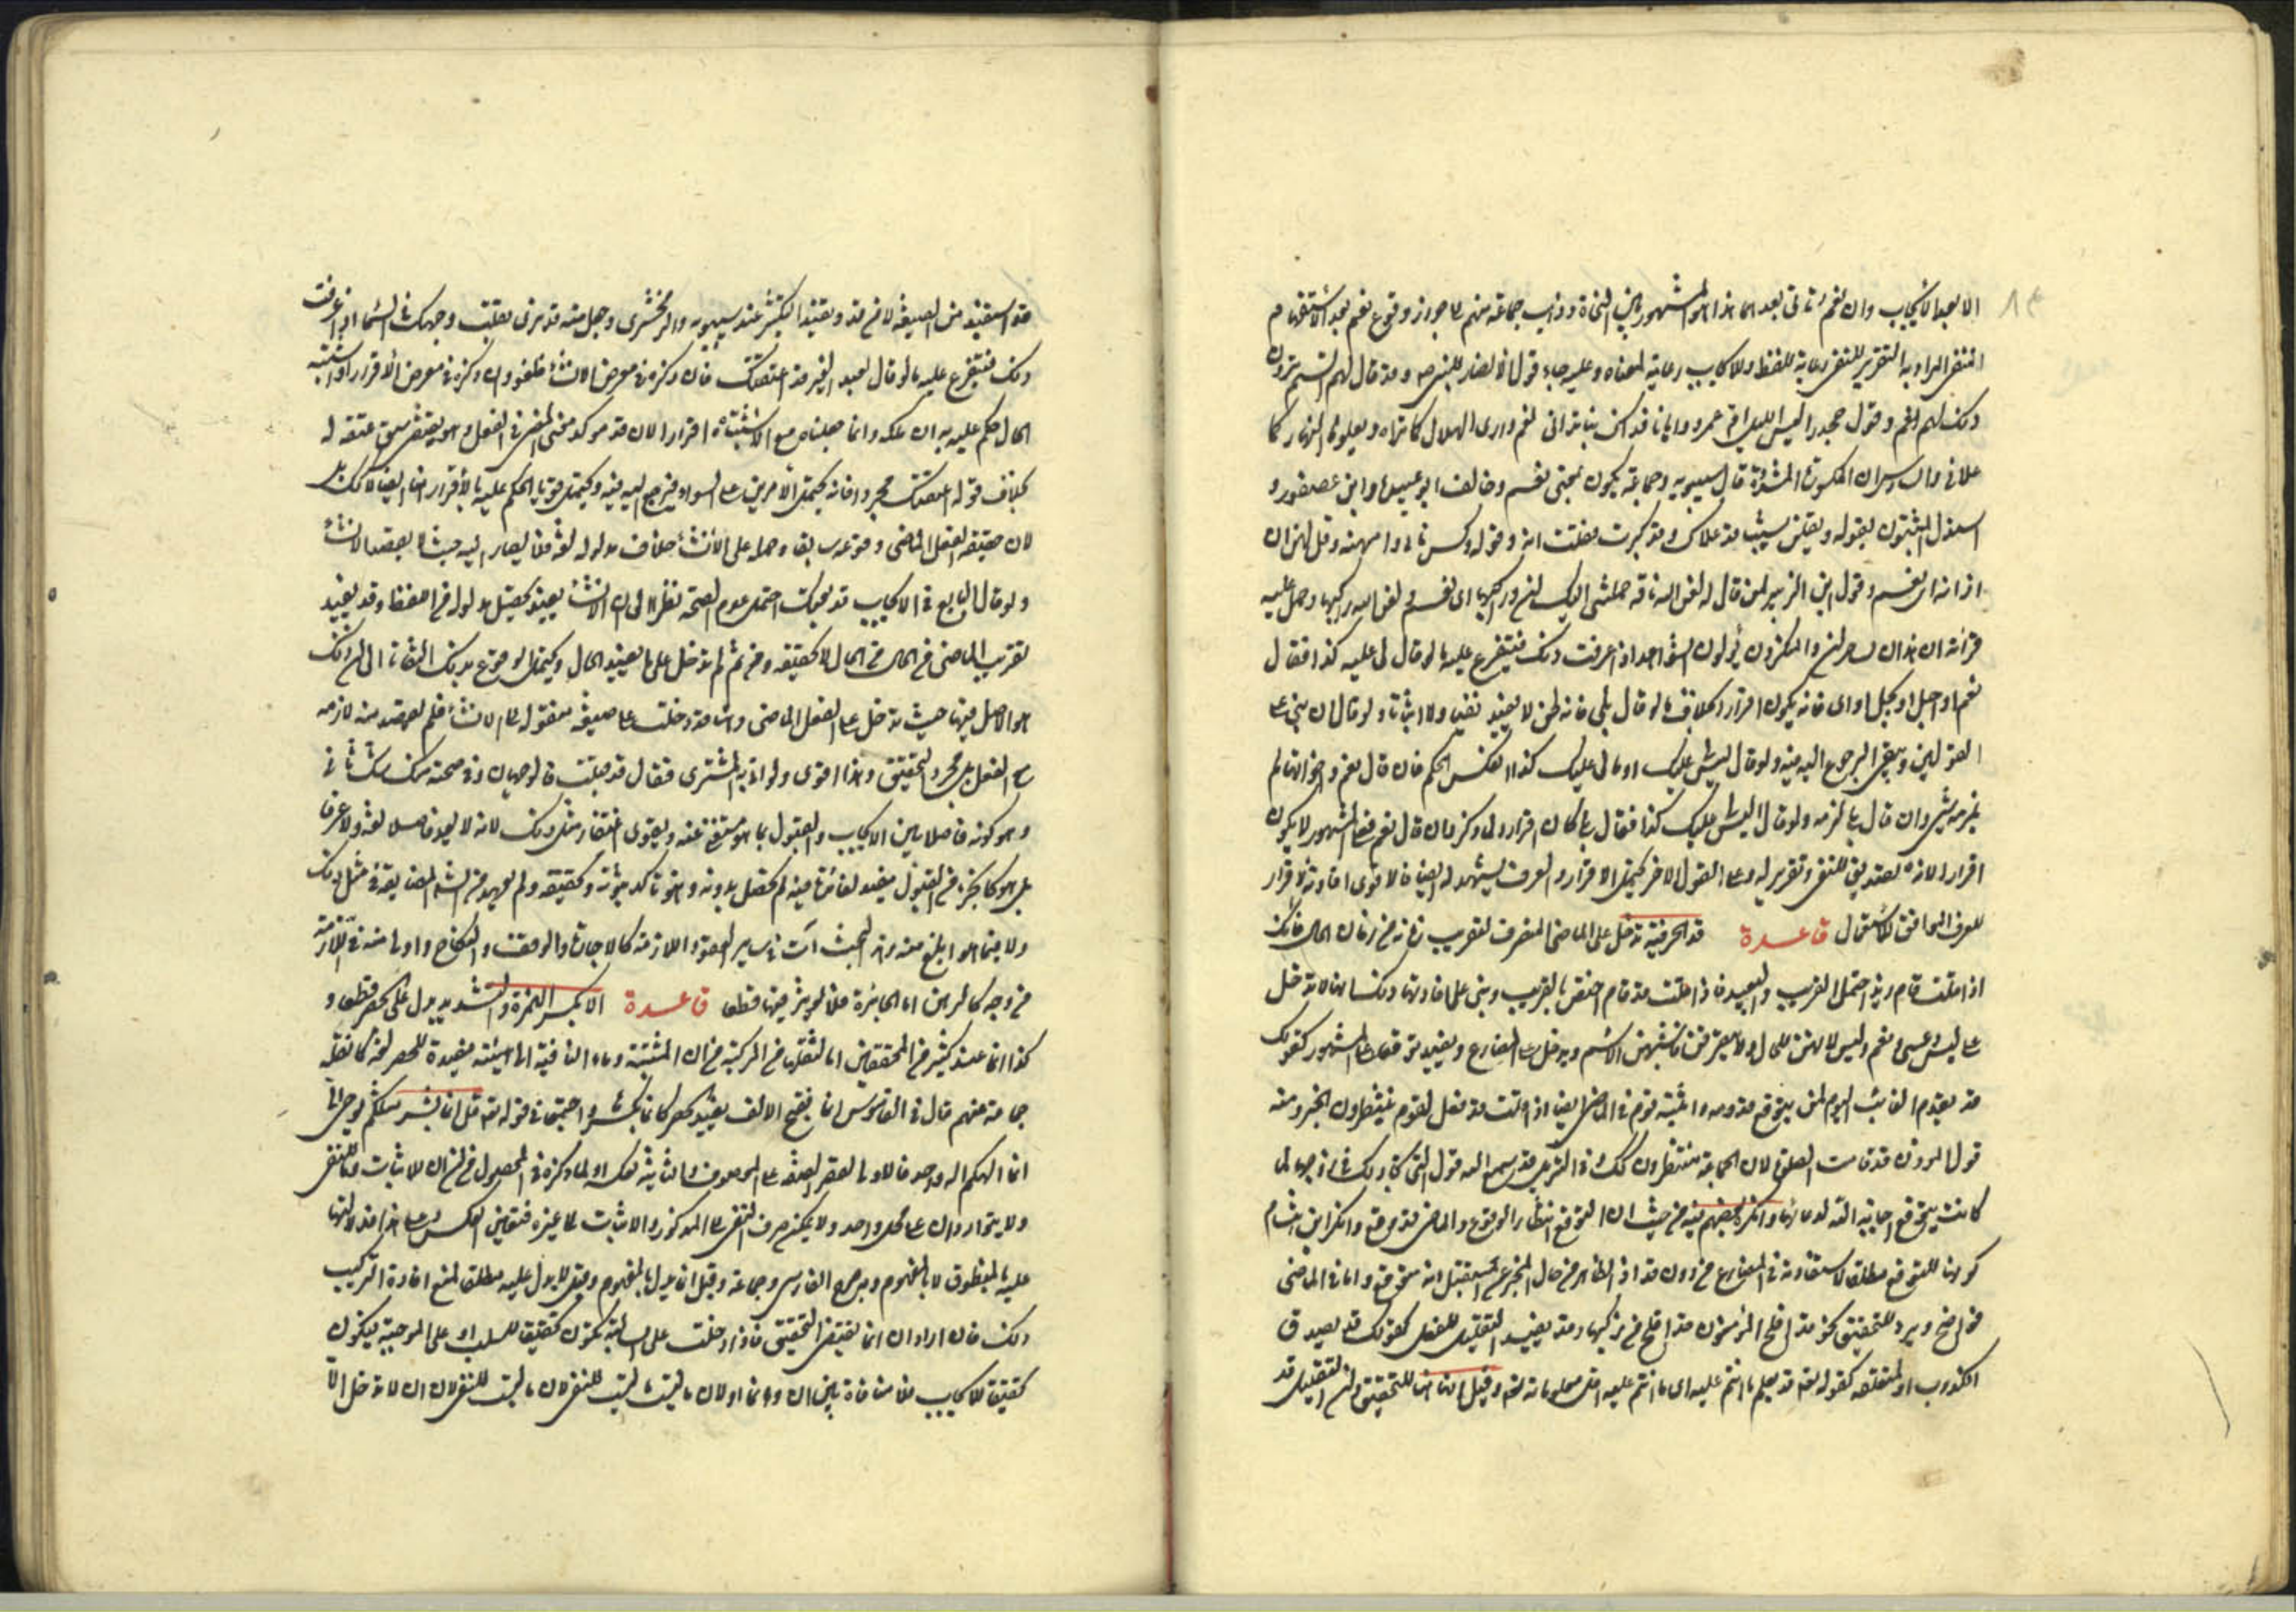 الا بعد الايجاب وان نعم تاتي بعدهما هذا هو المشهور بين النحاة وذهب جماعة منهم الى جواز وقوع نعم بعد الاستفهام
المنفي المراد به التقرير للنفي رعاية للفظ والايجاب رعاية لمعناه وعليه جاء قول الانصار للنبي ص وقد قال لهم الستم ترون
ذلك لهم نعم وقول جحدر اليس الليل يجمع ام عمرو وايانا فذاك بنا تداني نعم وارى الهلال كما تراه ويعلوها النهار كما
علاني ان المكسورة المشددة قال سيبويه وجماعة يكون بمعنى نعم وخالف ابو عبيدة وابن عصفور و
استدل المثبتون بقوله ويقلن شيب قد علاك وقد كبرت فقلت انه
اذ انه اى نعم وقول ابن الزبير لمن قال له لعن الله ناقة حملتني اليك ان وراكبها اى نعم ولعن الله راكبها وحمل عليه
قرائة ان هذان لساحران والمنكرون يأولون الشواهد اذا عرفت ذلك فيتفرع عليه ما لو قال لى عليك كذا فقال
نعم او اجل او بجل او اى فانه يكون اقرارا بخلاف ما لو قال بلى فانه لا يفيد نفيا ولا اثباتا ولو قال ان بنى على
القولين وينبغي الرجوع اليه فيه ولو قال ليس لى عليك او مالى عليك كذا انعكس الحكم فان قال نعم واخواتها لم
يلزمه شئ وان قال بلى لزمه ولو قال اليس لى عليك كذا فقال بلى كان اقرارا وان قال نعم فعلى المشهور لا يكون
اقرارا لانه تصديق للنفي وتقرير له وعلى القول الاخر يحتمل الاقرار والعرف يشهد له ايضا فالاقوى افادته الاقرار
للعرف الموافق للاستعمال قاعدة قد الحرفية تدخل على الماضي المتصرف لتقريب زمانه من زمان الحال فانك
اذا قلت قام زيد احتمل القريب والبعيد فاذا قلت قد قام اختص بالقريب وبنى على افادتها ذلك انها لا تدخل
على ليس وعسى ونعم وبئس لانهن للحال ولا يتصرفن فاشبهن الاسم ويدخل على المضارع ويفيد توقعه على المشهور كقولك
قد يقدم الغائب اليوم لمن يتوقع قدومه واثبته قوم في الماضي ايضا اذا قلت قد فعل لقوم ينتظرون الخبر ومنه
قول المؤذن قد قامت الصلوة لان الجماعة منتظرون لذلك وفي التنزيل قد سمع الله قول التي تجادلك في زوجها لما
كانت يتوقع اجابة الله لدعائها وانكره بعضهم فيه من حيث ان التوقع انتظار الوقوع والماضي قد وقع وانكر ابن هشام
كونها للتوقع مطلقا لاستفادته في المضارع من دون قد اذ الظاهر من حال المخبر عن المستقبل انه متوقع واما في الماضي
فواضح ويرد للتحقيق نحو قد افلح المؤمنون قد افلح من زكيها وقد يفيد التقليل للفعل كقولك قد يصدق
الكذوب او لمتعلقه كقوله تعالى قد يعلم ما انتم عليه اى ما انتم عليه اقل معلوماته تعالى وقيل انها هنا للتحقيق وان التقليل قد
قد استفيد من الصيغة لا من قد وتفيد التكثير عند سيبويه والزمخشري وجعل منه قد نرى تقلب وجهك في السماء اذا عرفت
ذلك فيتفرع عليه ما لو قال لعبد الغير قد اعتقتك فان ذكره في معرض الانشاء فلغو وان ذكره في معرض الاقرار او اشتبه
الحال حكم عليه به ان ملكه وانما جعلناه مع الاشتباه اقرارا لان قد مؤكد معنى المضي في الفعل وهو يقتضي سبق عتقه له
بخلاف قوله اعتقتك مجردا فانه يحتمل الامرين على السواء فيرجع اليه فيه ويحتمل قويا الحكم عليه بالاقرار هنا ايضا لذلك بل
لان حقيقة الفعل الماضي وقوعه سابقا وحمله على الانشاء خلاف مدلوله لغة فلا يصار اليه حيث لا يقصد الانشاء
ولو قال البايع في الايجاب قد بعتك احتمل عدم الصحة نظرا الى ان الانشاء يفيد تحصيل مدلوله فى اللفظ وقد يفيد
تقريب الماضي من الحال لا تحقيقه ومن ثم لم تدخل على ما يفيد الحال ويحتمل الوقوع بذلك التفاتا الى ان ذلك
هو الاصل فيها حيث تدخل على الفعل الماضي وهنا قد دخلت على صيغة منقولة الى الانشاء فلم يقصد منه لازمه
مع الفعل بل مجرد التحقيق وهذا اقوى ولو اتى به المشتري فقال قد قبلت فالوجهان وفي صحته شك
وهو كونه فاصلا بين الايجاب والقبول بما هو مستغن عنه ويقوى اغتفار مثل ذلك لانه لا يعد فاصلا لغة ولا عرفا
بل هو كالجزء من القبول مفيد لفائدة فيه لم تحصل بدونه وهو تاكد ثبوته وتحقيقه ولم يعهد من الشرع المضايقة في مثل ذلك
ولا فيما هو ابلغ منه وهذا البحث آت في ساير العقود اللازمة كالاجارة والوقف والنكاح واولى منه في اللازمة
من وجه كالرهن اما الجائزة فلا يؤثر فيها قطعا قاعدة الا بكسر الهمزة والتشديد يدل على الحصر قطعا و
كذا انما عند كثير من المحققين اما لنقلها من المركبة من ان المثبتة وما النافية الى هيئته مفيدة للحصر لغة كما نقله
جماعة منهم قال في القاموس انما بفتح الالف يفيد الحصر كانما بالكسر واجتمعا في قوله تعالى قل انما انا بشر مثلكم يوحى الى
انما الهكم اله واحد فالاولى لقصر الصفة على الموصوف والثانية لعكسه او لما ذكره في المحصول من ان ان للاثبات وما للنفي
ولا يتواردان على محل واحد ولا يمكن صرف النفي الى المذكور والاثبات الى غيره فتعين العكس وعلى هذا فدلالتها
عليه بالمنطوق لا بالمفهوم وبه صرح الفارسي وجماعة وقيل انما يدل بالمفهوم وقيل لا يدل عليه مطلقا لمنع افادة التركيب
ذلك فان اراد ان انما يقتضي التحقيق فاذا دخلت على السالبة تكون تحقيقا للسلب او على الموجبة فيكون
تحقيقا للايجاب فلا منافاة بين ان وما اولان ما ليست للنفي لان ما ليست للنفي لان ان لا تدخل الا